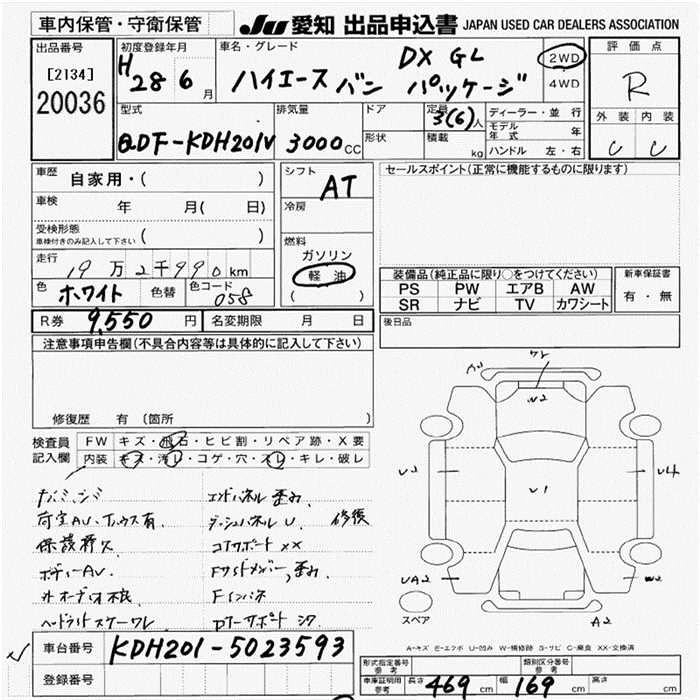 車内保管・守衛保管
JU 愛知 出品申込書 JAPAN USED CAR DEALERS ASSOCIATION
出品番号
[2134]
20036
初度登録年月
H 28 6 月
車名・グレード
DX GL
ハイエース バン パッケージ
2WD
4WD
評価点
R
外装 内装
C C
型式
QDF-KDH201V
排気量
3000 CC
ドア
形状
定員
3(6)人
積載
kg
ディーラー・並行
モデル年式 年
ハンドル 左・右
車歴
自家用・( )
車検
年 月( 日)
受検形態
車検付きのみ記入して下さい ( )
走行
19万2千990km
色
ホワイト
色替
色コード
058
シフト
AT
冷房
燃料
ガソリン
軽油
( )
セールスポイント(正常に機能するものに限ります)
装備品(純正品に限り○をつけてください)
PS PW エアB AW
SR ナビ TV カワシート
新車保証書
有・無
R券 9,550 円
名変期限 月 日
後日品
注意事項申告欄(不具合内容等は具体的に記入して下さい)
修復歴 有 (箇所 )
検査員記入欄
FW キズ・飛石・ヒビ割・リペア跡・X要
内装 キズ・汚レ・コゲ・穴・スレ・キレ・破レ
エンドパネル 歪み
ダッシュパネル U 修復
コアサポート XX
Fサイドメンバー, 歪み
Fインパネ
ボディーAU
ヘッドライトスケーワレ
W2
U1
U3
U4
UA2
W2
A2
スペア
A-キズ E-エフボ U-凹み W-補修跡 S-サビ C-腐食 XX-交換済
車台番号
KDH201-5023593
登録番号
形式指定番号 参考
類別区分番号 参考
車庫証明用 参考
長さ 469 cm
幅 169 cm
高さ cm